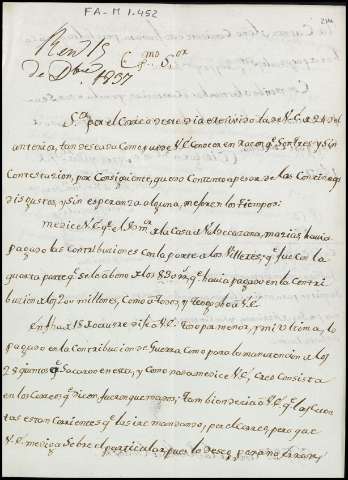 FA-M 1.452
214
Rend 15
de Dbre 1837
Exmo Sor
Sor por el Correo de este dia e recivido la de V.E. de 24 del
anterior, tan deseada Como puede V.E Conocer en Razon qe Son tres y sin
Contestacion, por Consiguiente, quedo Contento apesar de las Continuas
disgustos, y sin esperanza alguna, mejoren los tiempos.
me dice V.E. qe el Sor de la Casa de Valdecarzana, mas
pagado las Contribuciones Con la parte de los Villeres, qe fue con la
quarta parte qe se le abono de los 8 Don, qe havia pagado en la Contri
bucion de los 200 millones, Como a todos, y tengo dho a V.E.
En fha 18 de octubre dije a V.E. todo por menor, y mi ultima, lo
pagado en la Contribucion de Guerra Como para la manutencion de los
28 quintos qe Sacaron en esta, y Como nada me dice V.E, Creo Consista
en los Correos qe dicen fueron quemados; tambien decia a V.E. qe las Cuen
tas estan Corrientes qe las ire mandando, por el Correo, pero que
V.E. me diga Sobre el particular, pues lo deseo, para no